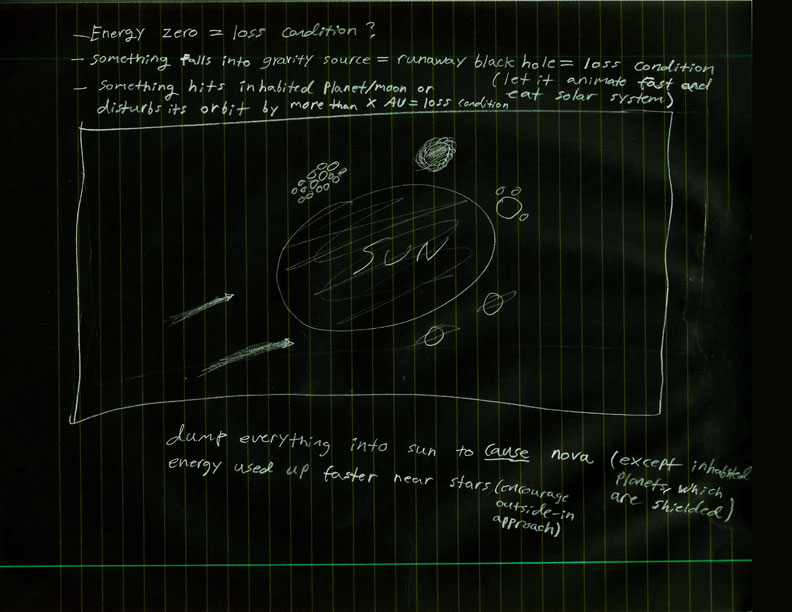 - Energy zero = loss condition?
- something falls into gravity source = runaway black hole = loss condition
(let it animate fast and
eat solar system)
- Something hits inhabited planet/moon or
disturbs its orbit by more than X AU = loss condition
SUN
dump everything into sun to cause nova (except inhabited
planets, which
are shielded)
energy used up faster near stars (encourage
outside-in
approach)